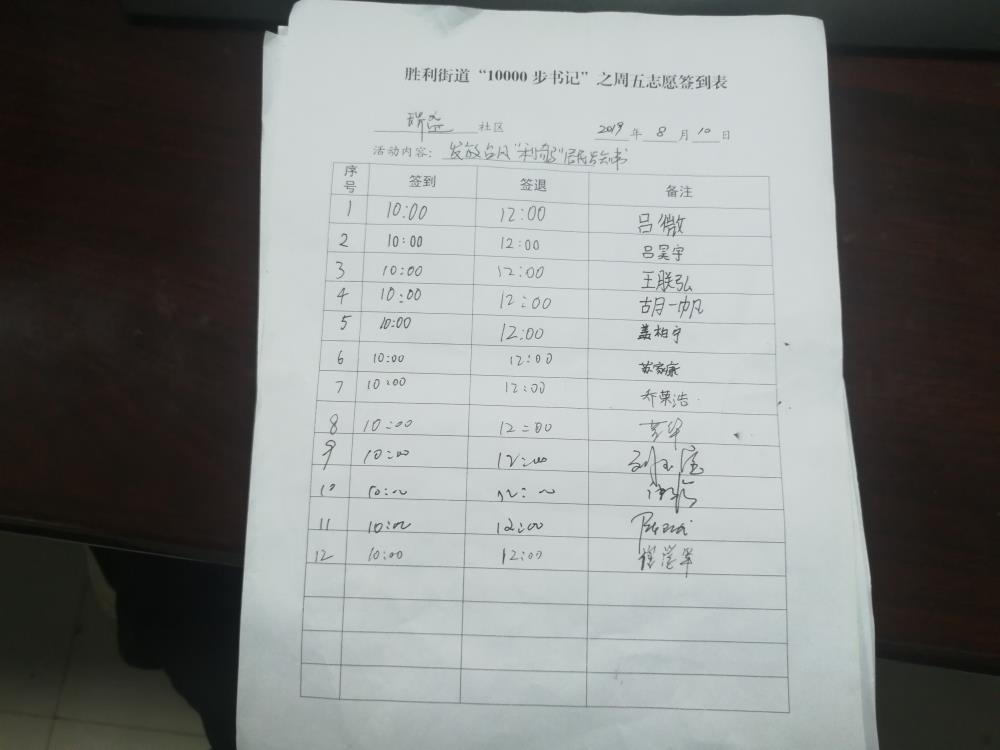 胜利街道“10000步书记”之周五志愿签到表
社区 2019年8月10日
活动内容：发放台风“利奇马”居民告知书
序号 签到 签退 备注
1 10:00 12:00 吕微
2 10:00 12:00 吕昊宇
3 10:00 12:00 王朕弘
4 10:00 12:00 胡一帆
5 10:00 12:00 盖柏宁
6 10:00 12:00 苏家康
7 10:00 12:00 乔荣浩
8 10:00 12:00
9 10:00 12:00
10 10:00 12:00
11 10:00 12:00
12 10:00 12:00